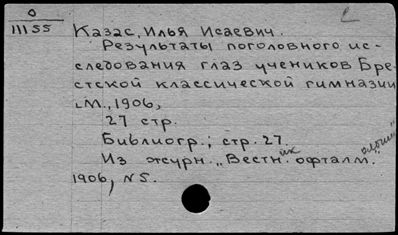 0
11155
Казас, Илья Исаевич.
Результаты поголовного ис-
следования глаз учеников Бре-
стской классической гимназии
М., 1906,
27 стр.
Библиогр.; стр. 27
Из журн. „Вестн. офталм."
1906, №5.